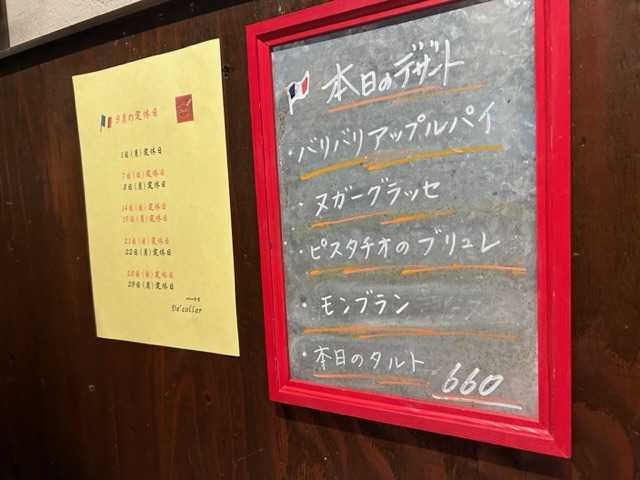 9月の定休日
1日(月)定休日
7日(日)定休日
8日(月)定休日
14日(日)定休日
15日(月)定休日
21日(日)定休日
22日(月)定休日
28日(日)定休日
29日(月)定休日
De'coller
本日のデザート
・バリバリアップルパイ
・ヌガーグラッセ
・ピスタチオのブリュレ
・モンブラン
・本日のタルト
660